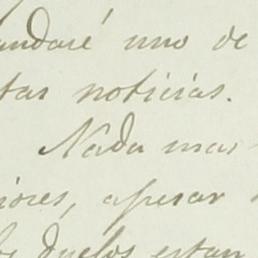 andaré uno de
tas noticias.
Nada mas
iores, apesar
los duelos estan